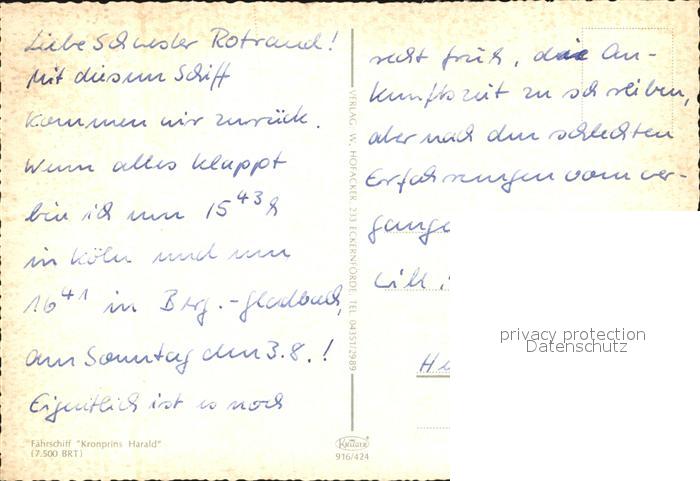 Liebe Schwester Rotraud!
Mit diesem Schiff
kommen wir zurück.
Wenn alles klappt
bin ich um 15⁴³h
in Köln und um
16⁴¹ in Berg.-Gladbach,
am Sonntag den 3.8.!
Eigentlich ist es noch
recht früh, die An-
kunftszeit zu schreiben,
aber nach den schlechten
Erfahrungen vom ver-
gange
will
He
VERLAG W. HOFACKER 233 ECKERNFÖRDE TEL. 04351/2989
Fährschiff "Kronprins Harald"
(7.500 BRT)
Krüger
916/424
privacy protection
Datenschutz